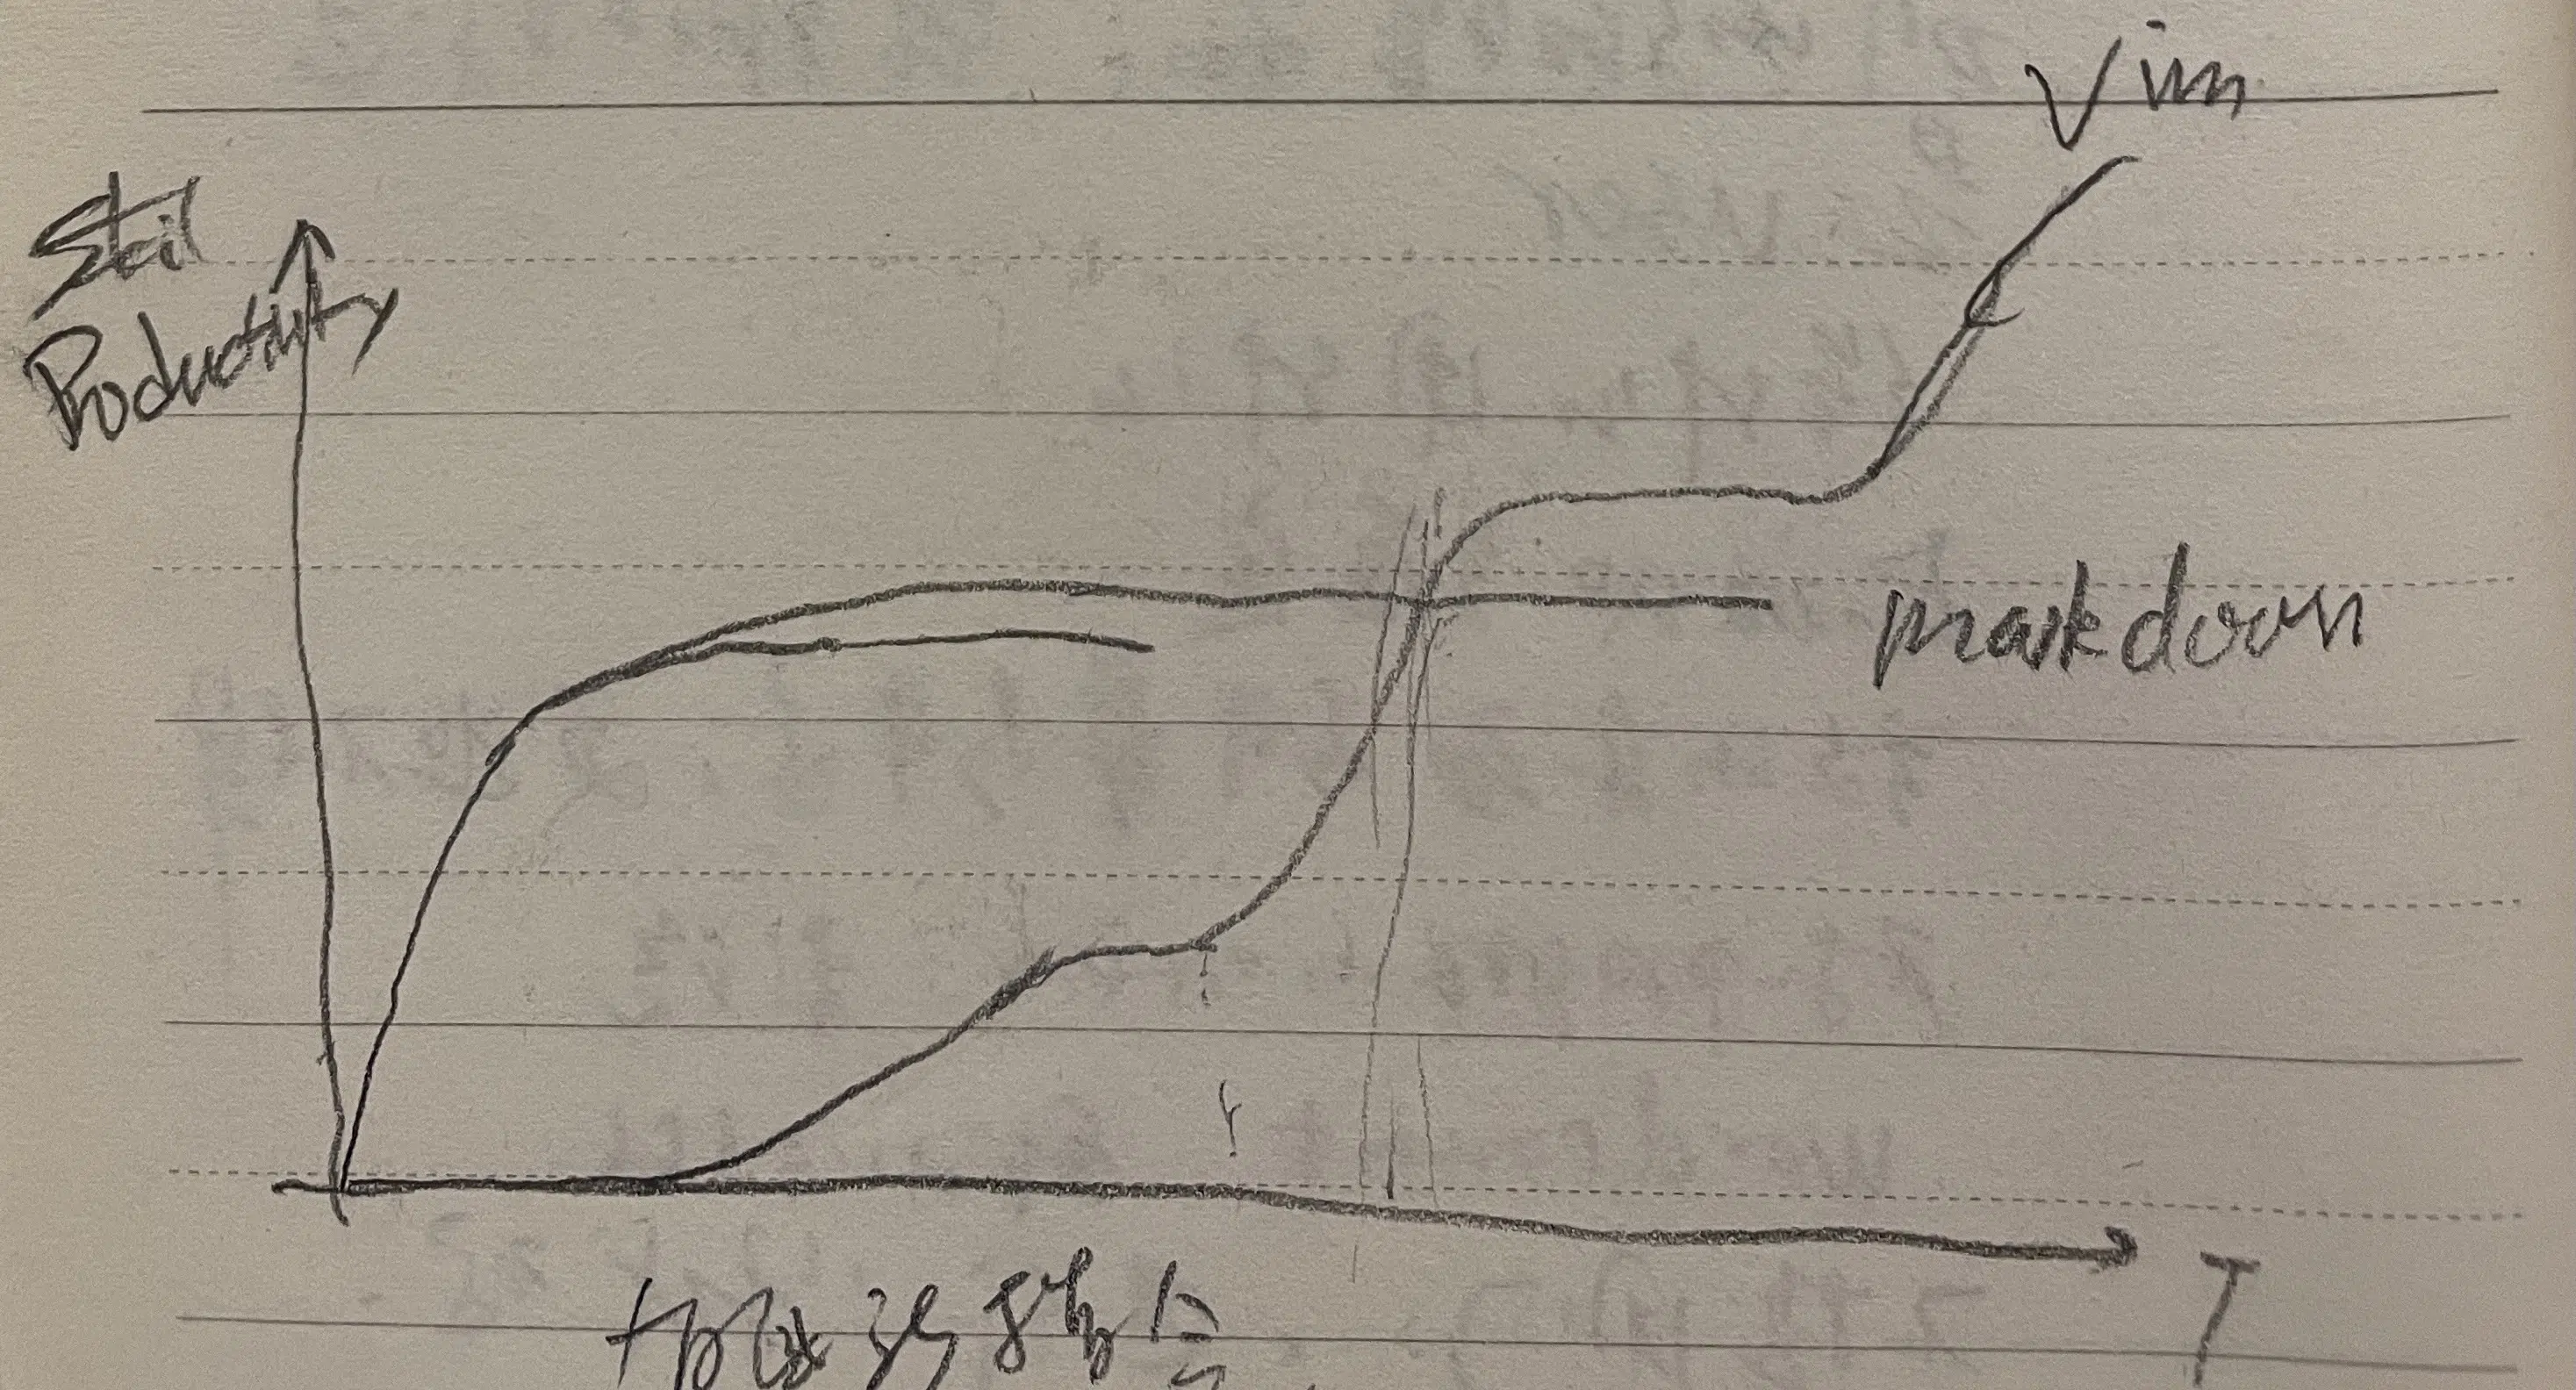 Vim
Skil
Productivity
markdown
T